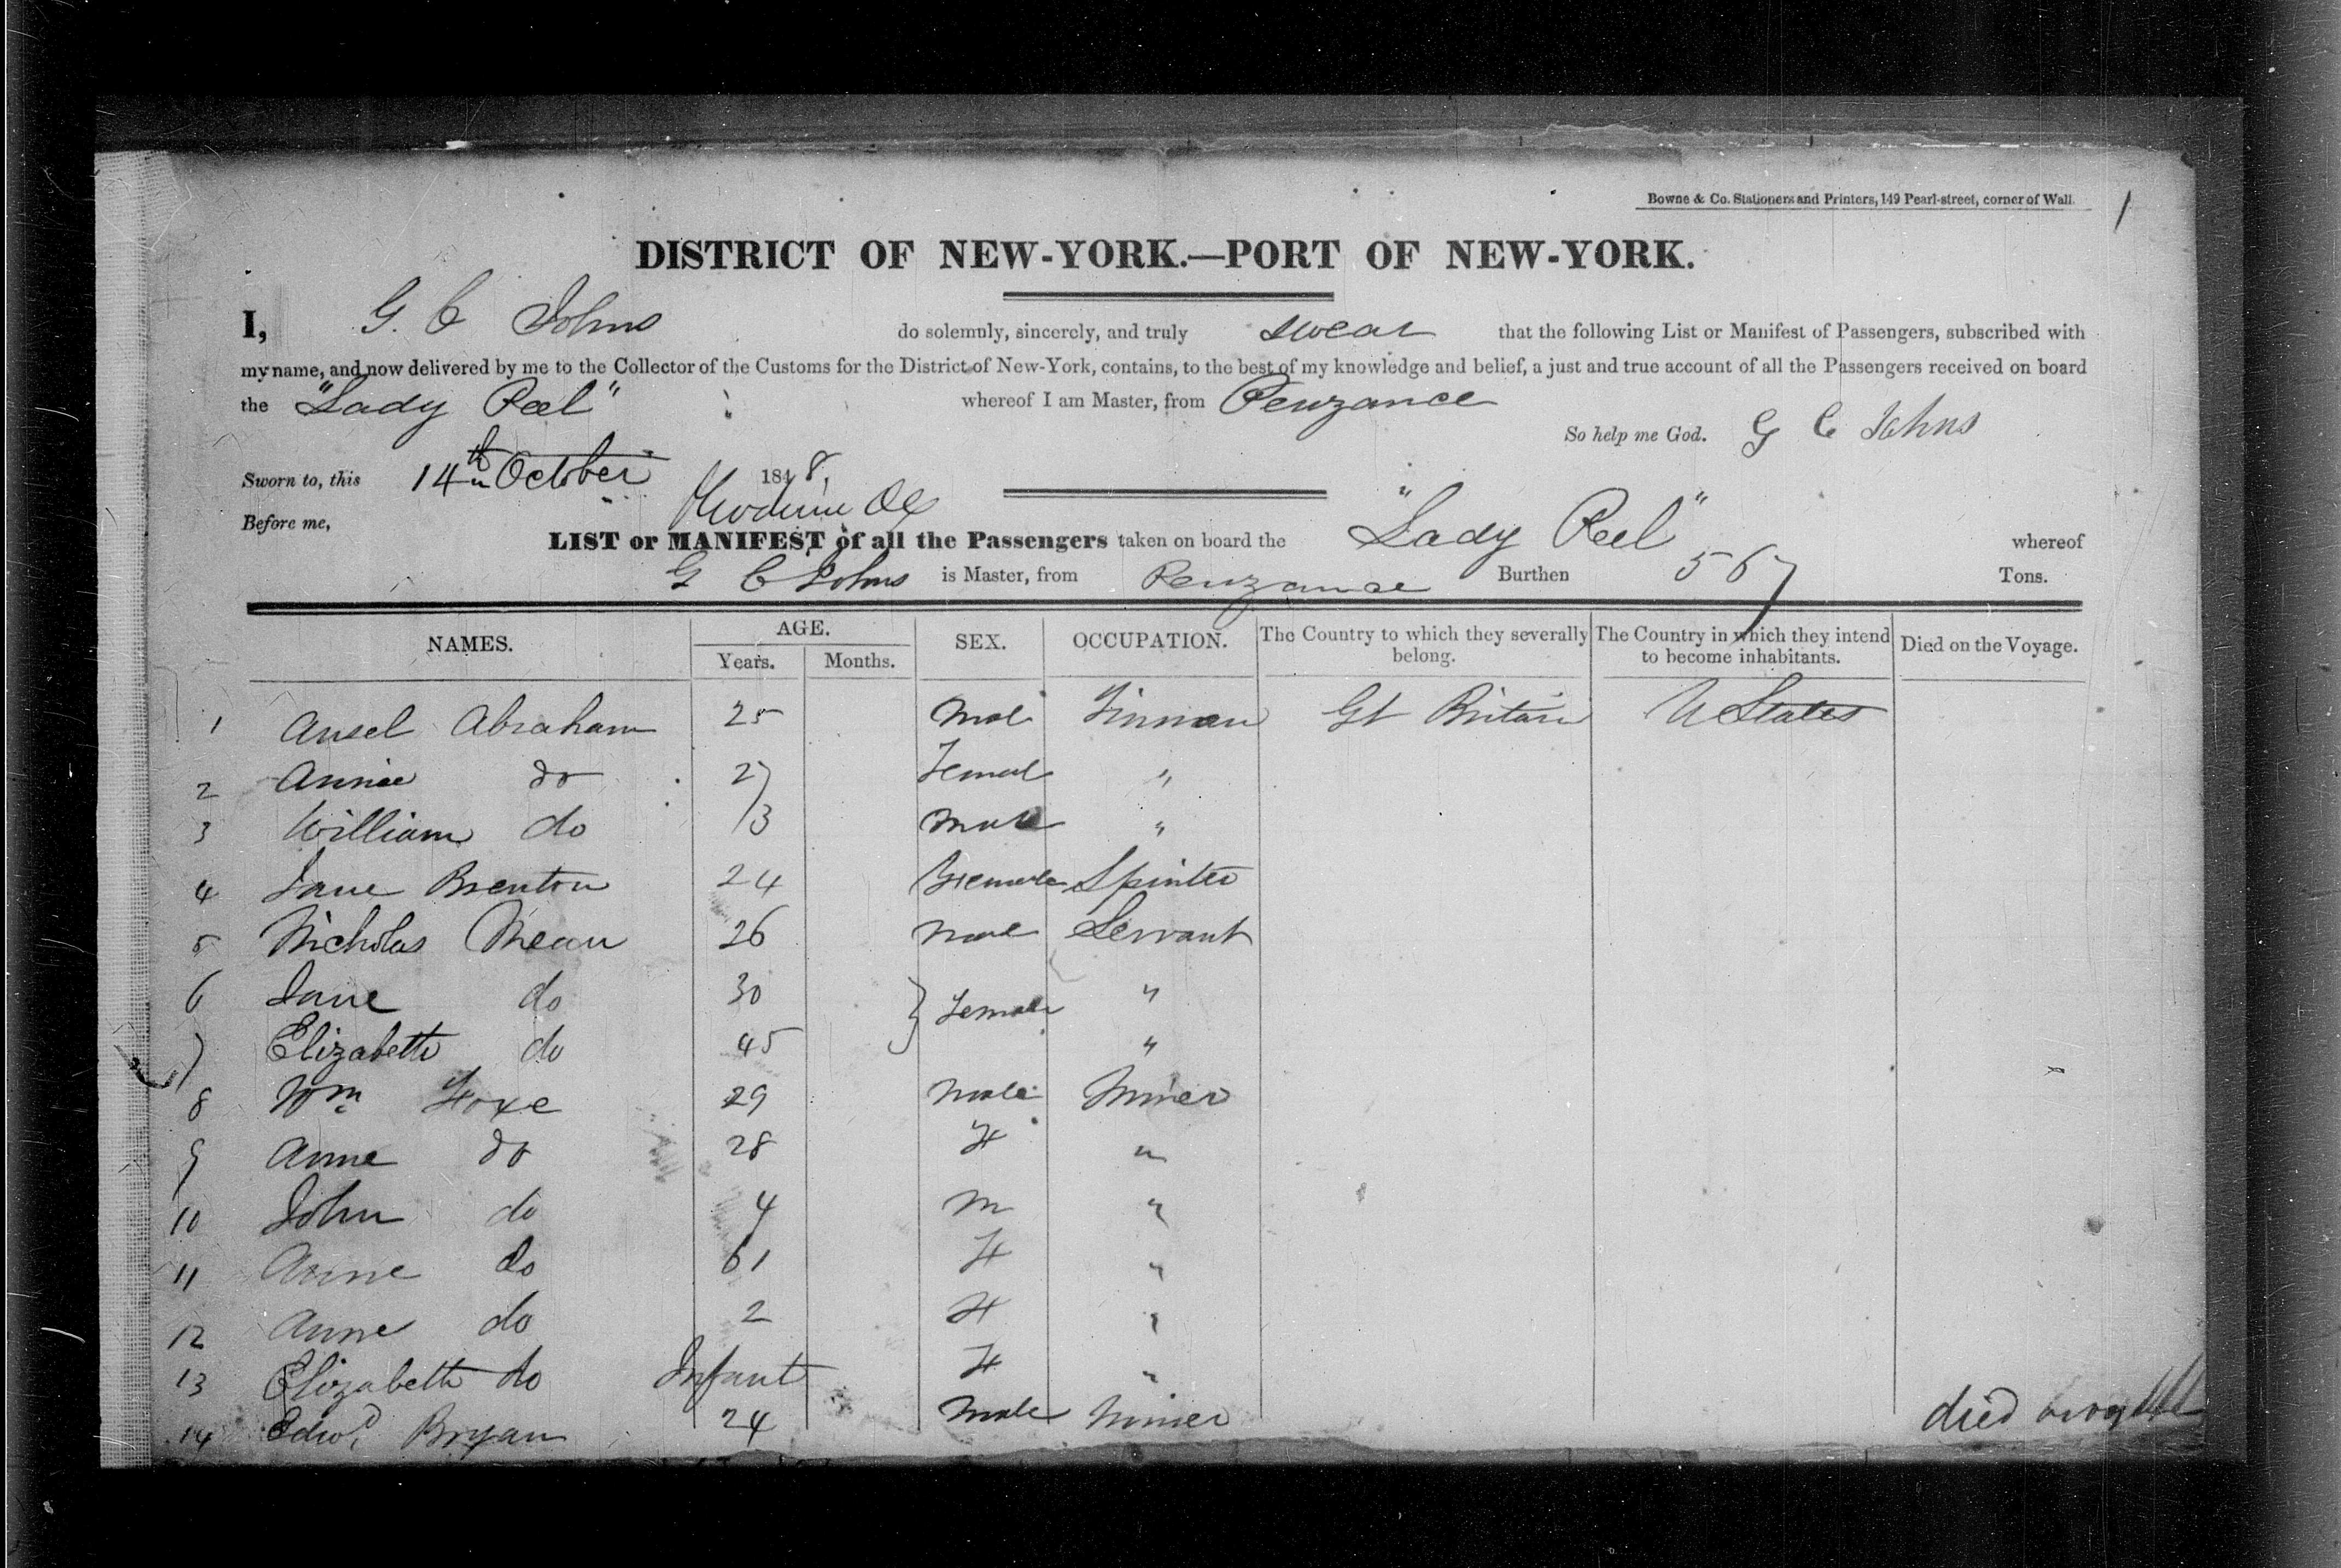 Bowne & Co. Stationers and Printers, 149 Pearl-street, corner of Wall. 1
DISTRICT OF NEW-YORK.—PORT OF NEW-YORK.
I, G. C Johns do solemnly, sincerely, and truly swear that the following List or Manifest of Passengers, subscribed with
my name, and now delivered by me to the Collector of the Customs for the District of New-York, contains, to the best of my knowledge and belief, a just and true account of all the Passengers received on board
the "Lady Peel" whereof I am Master, from Penzance
So help me God. G C Johns
Sworn to, this 14th October 1848.
Before me,
LIST or MANIFEST of all the Passengers taken on board the "Lady Peel" whereof
G C Johns is Master, from Penzance Burthen 567 Tons.
NAMES. AGE. SEX. OCCUPATION. The Country to which they severally belong. The Country in which they intend to become inhabitants. Died on the Voyage.
Years. Months.
1 Ansel Abraham 25 Male Tinman Gt Britain U States
2 Annie do 27 Female "
3 William do 13 Male "
4 Jane Brenton 24 Female Spinster
5 Nicholas Mean 26 Male Servant
6 Jane do 30 } Female "
7 Elizabeth do 45 "
8 Wm Foxe 29 Male Miner
9 Anne do 28 F "
10 John do 4 M "
11 Anne do 61 F "
12 Anne do 2 F "
13 Elizabeth do Infant F "
14 Edwd Bryan 24 Male Miner died